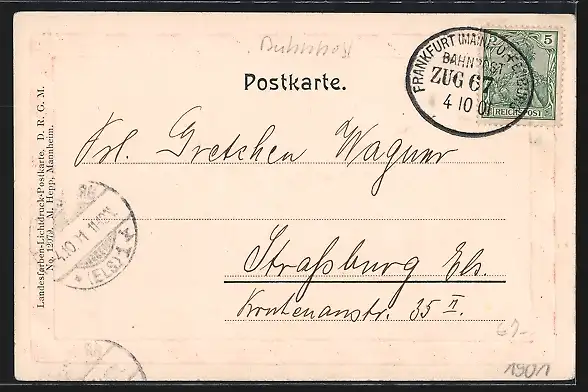 Bahnpost
Postkarte.
FRANKFURT (MAIN)
BAHNPOST
ZUG 67
4 10 01
5
REICHSPOST
Frl. Gretchen Wagner
Straßburg Els.
35 II.
4.10.01 11-12N.
* (ELS) 1 *
Landesfarben-Lichtdruck-Postkarte, D. R. G. M.
No. 1207A. M. Hepp, Mannheim.
1901